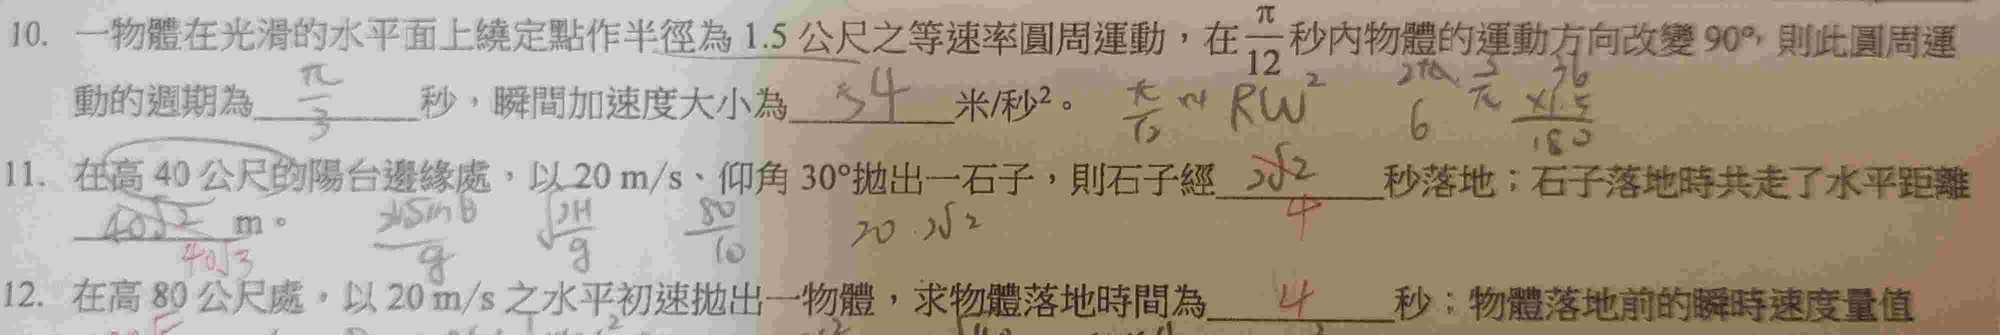 10. 一物體在光滑的水平面上繞定點作半徑為 1.5 公尺之等速率圓周運動，在 π/12 秒內物體的運動方向改變 90°，則此圓周運
動的週期為 π/3 秒，瞬間加速度大小為 54 米/秒²。 π/12 RW² 6 36 ×1.5 180
11. 在高 40 公尺的陽台邊緣處，以 20 m/s、仰角 30°拋出一石子，則石子經 2√2 4 秒落地；石子落地時共走了水平距離
40√2 m。 40√3 sinθ/g √2H/g 80/10 20·2√2
12. 在高 80 公尺處，以 20 m/s 之水平初速拋出一物體，求物體落地時間為 4 秒；物體落地前的瞬時速度量值